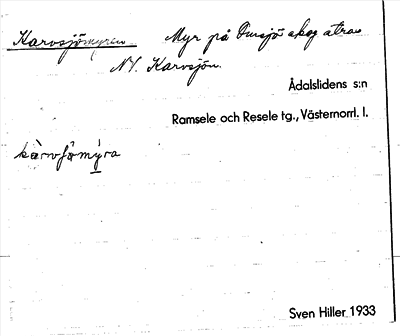 Karvsjömyren Myr på Omsjö skog strax
NV. Karvsjön.
Ådalslidens s:n
Ramsele och Resele tg., Västernorrl. l.
kàrvſömýra
Sven Hiller 1933